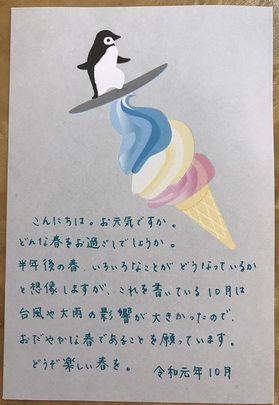 こんにちは。お元気ですか。
どんな春をお過ごしでしょうか。
半年後の春、いろいろなことがどうなっているか
と想像しますが、これを書いている10月は
台風や大雨の影響が大きかったので、
おだやかな春であることを願っています。
どうぞ楽しい春を。 令和元年10月